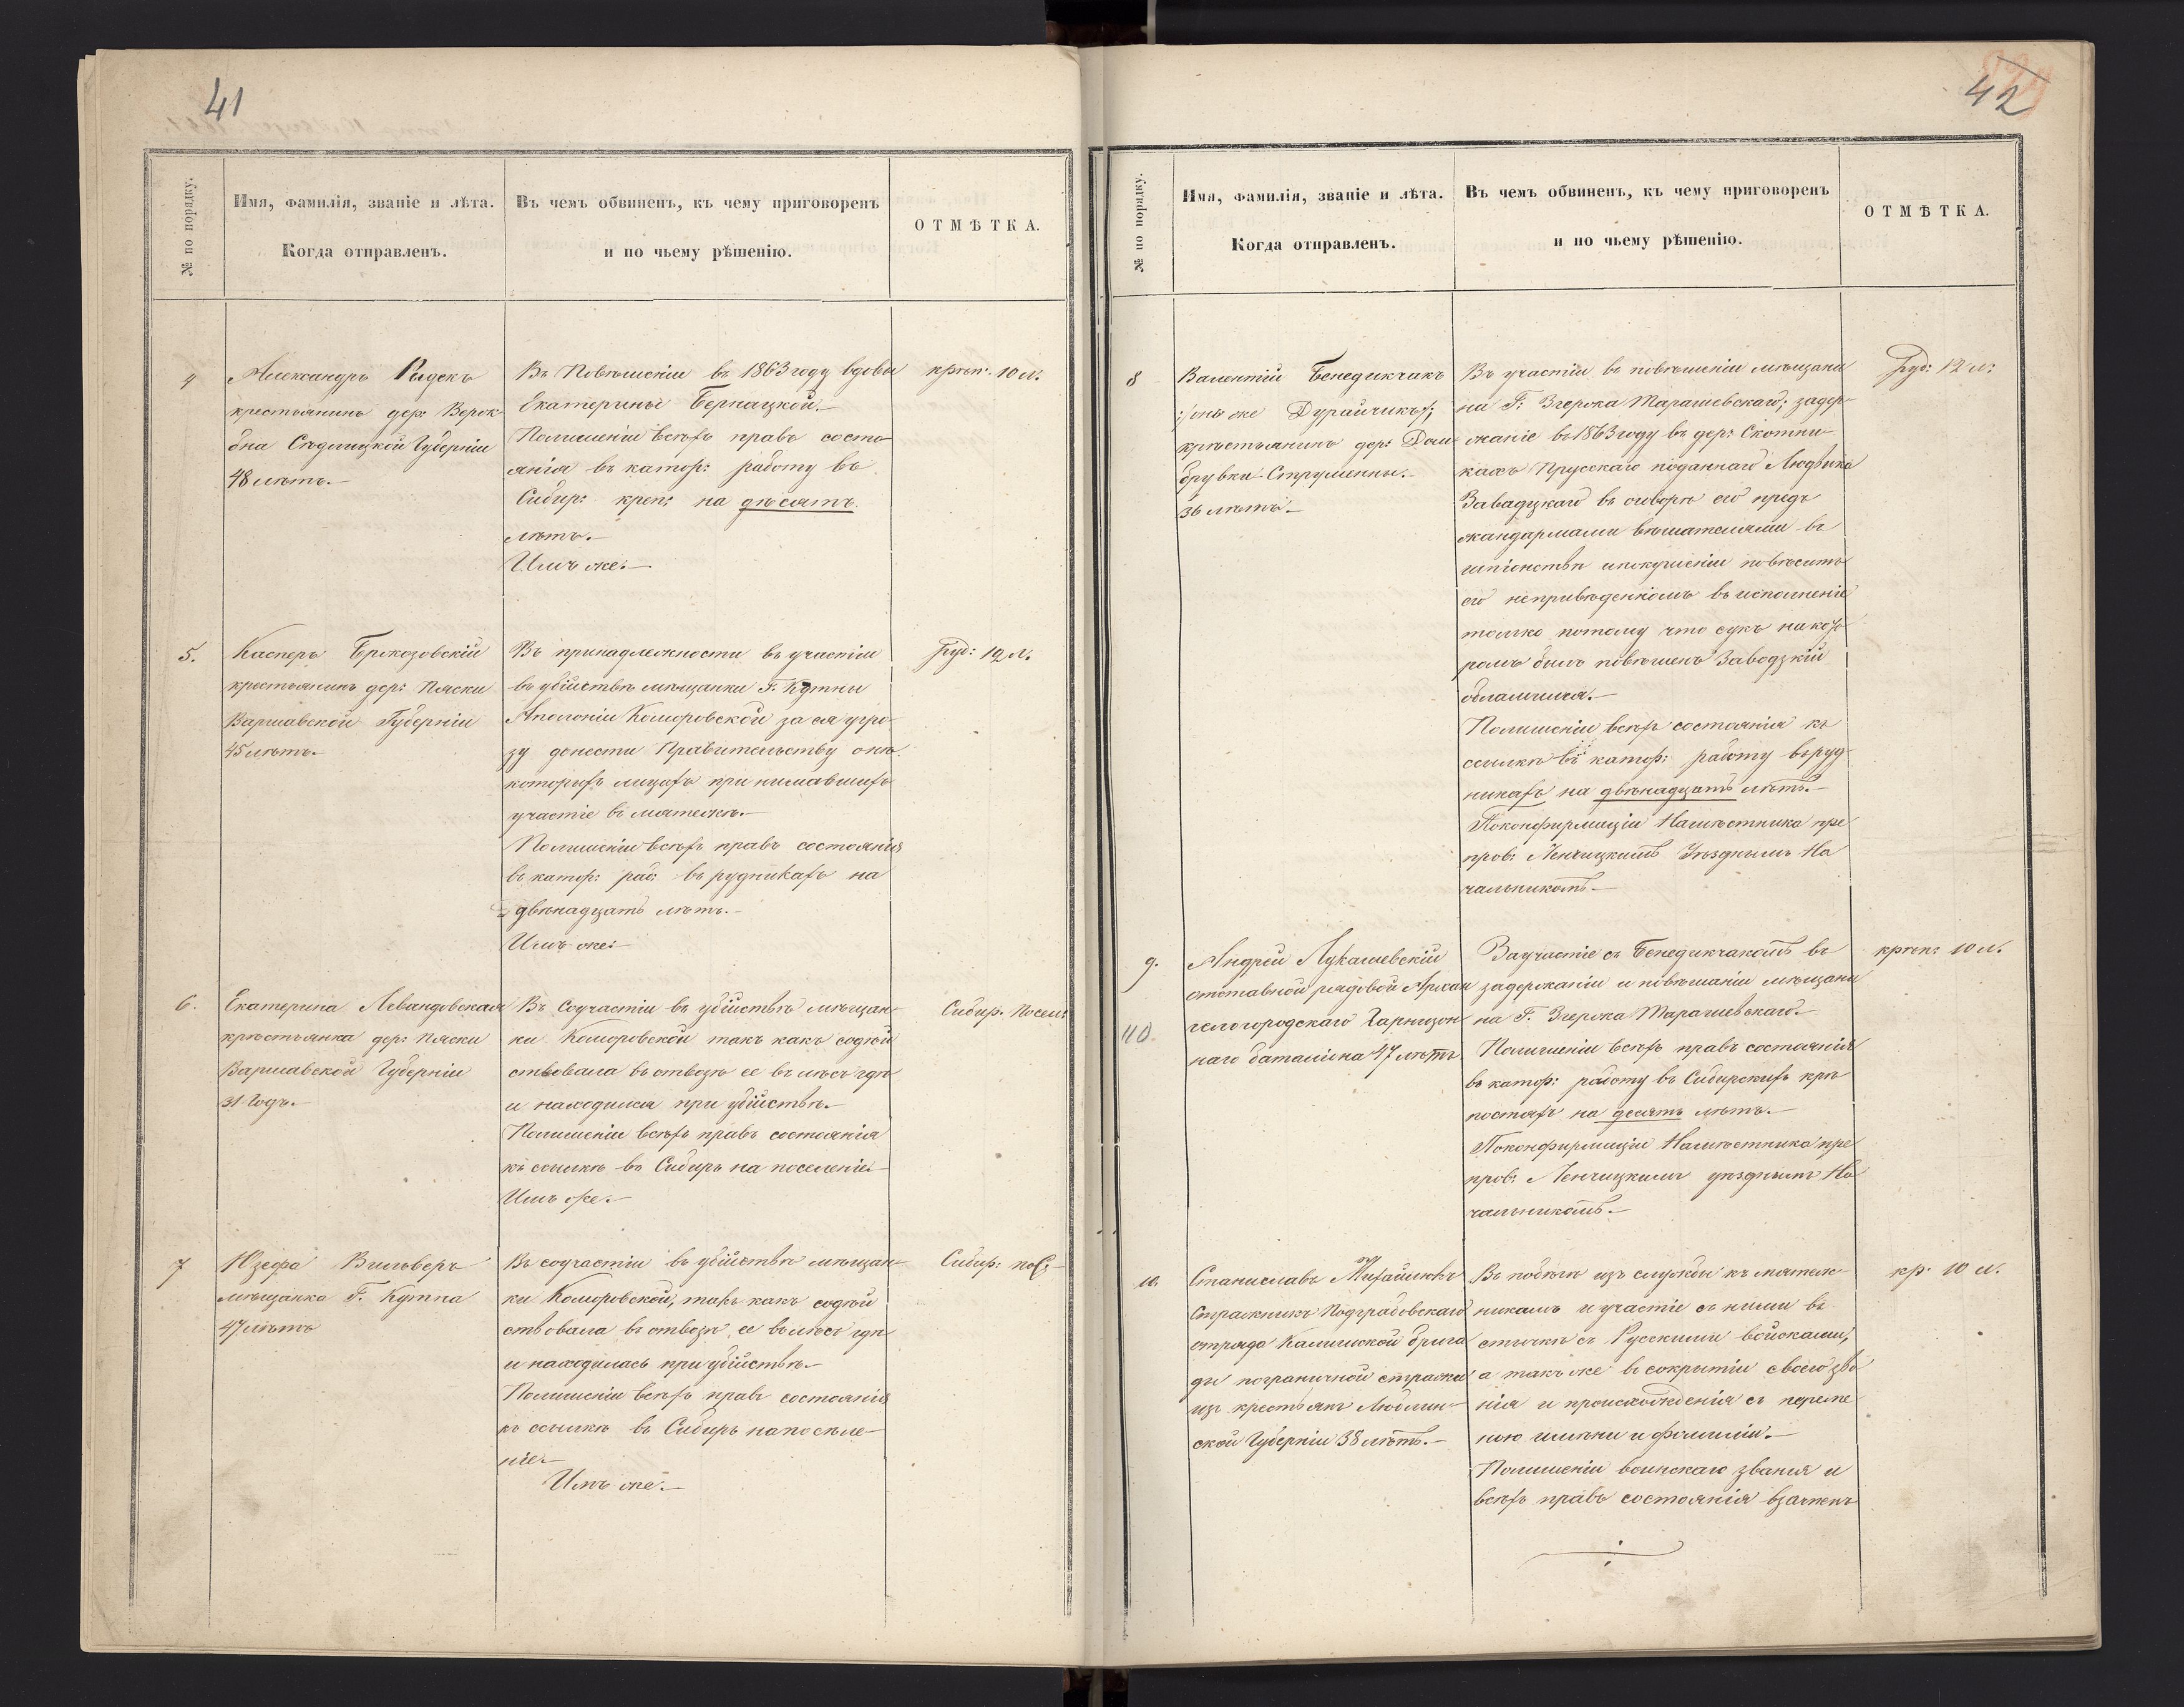 41
№ по порядку.
Имя, фамилія, званіе и лѣта.
Когда отправленъ.
Въ чемъ обвиненъ, къ чему приговоренъ
и по чьему рѣшенію.
ОТМѢТКА.
4
Александръ Радекъ
крестьянинъ дер: Верок
бна Сѣдлицкой Губерніи
48 лѣтъ.—
Въ Повѣшеніи въ 1863 году вдовы
Екатерины Бернацкой.—
Полишеніи всѣхъ правъ состо
янія въ катор: работу въ
Сибир: креп: на дѣсять
лѣтъ.—
Имъ же.—
крѣп: 10 л.
5.
Касперъ Бржозовскій
крестьянинъ дер: Пяски
Варшавской Губерніи
45 лѣтъ.—
Въ принадлежности въ участіи
въ убійствѣ мѣщанки Г. Кутны
Аполоніи Коморовской за ея угро
зу донести Правительству онѣ
которыхъ лицахъ принимавшихъ
участіе въ мятежѣ.—
Полишеніи всѣхъ правъ состоянія
въ катор: раб: въ рудникахъ на
двѣнадцать лѣтъ.—
Имъ же:—
Руд: 12 л.
6.
Екатерина Левандовская
крѣстьянка дер: Пяски
Варшавской Губерніи
31 Годъ.—
Въ Соучастіи въ убійствѣ мѣщан
ки Коморовской такъ какъ содѣй
ствовала въ отвозѣ ее въ лѣсъ гдѣ
и находилася при убійствѣ.—
Полишеніи всѣхъ правъ состоянія
къ ссылкѣ въ Сибирь на поселеніе.—
Имъ же.—
Сибир. Посел:
7
Юзефа Вильверъ
мѣщанка Г. Кутна
47 лѣтъ
Въ соучастіи въ убійствѣ мѣщан
ки Коморовской, такъ какъ содѣй
ствовала въ отвозѣ ее въ лѣсъ гдѣ
и находилась при убійствѣ.—
Полишеніи всѣхъ правъ состоянія
къ ссылкѣ въ Сибирь на поселе
ніе.—
Имъ же.—
Сибир: пос:
42
№ по порядку.
Имя, фамилія, званіе и лѣта.
Когда отправленъ.
Въ чемъ обвиненъ, къ чему приговоренъ
и по чьему рѣшенію.
ОТМѢТКА.
8
Валентій Бенедикчакъ
:/онъ же Дурайчикъ/:
крѣстьянинъ дер: Дом
брувки Струмены.—
36 лѣтъ.—
Въ участіи въ повѣшеніи мѣщани
на Г: Згержа Марашевскаго; задер
жаніе въ 1863 году въ дер: Скотни
кахъ Прусскаго поданнаго Людвика
Завадзкаго въ оговорѣ его предъ
жандармами вѣшателями въ
шпіонствѣ и покушеніи повѣсить
его неприведенномъ въ исполненіе
только потому что сукъ на кото
ромъ былъ повѣшенъ Заводзкій
обламился.—
Полишеніи всѣхъ состоянія къ
ссылкѣ въ катор: работу въ руд
никахъ на двѣнадцать лѣтъ.—
По конфирмаціи Намѣстника пре
пров: Ленчицкимъ Уѣзднымъ На
чальникомъ.—
Руд: 12 л:
9.
40.
Андрей Лукашевскій
отставной рядовой Архан
гелогородскаго Гарнизон
наго баталіона 47 лѣтъ
За участіе съ Бенедикчакомъ въ
задержаніи и повѣшаніи мѣщани
на Г. Згержа Марашевскаго.—
Полишеніи всѣхъ правъ состоянія
въ катор: работу въ Сибирскихъ крѣ
постяхъ на десять лѣтъ.—
По конфирмаціи Намѣстника пре
пров: Ленчицкимъ уѣзднымъ На
чальникомъ.—
крѣп: 10 л.
10.
Станиславъ Михайликъ
Стражникъ Подграбовскаго
отряда Калишской брига
ды пограничной стражи
изъ крестьянъ Люблин
ской Губерніи 38 лѣтъ.—
Въ побѣгѣ изъ службы къ мятеж
никамъ и участіе съ ними въ
стычкѣ съ Русскими войсками,
а такъ же въ сокрытіи своего зва
нія и происхожденія съ переме
ною имѣни и фамиліи.—
Полишеніи воинскаго званія и
всѣхъ правъ состоянія взамѣнъ
кр. 10 л.